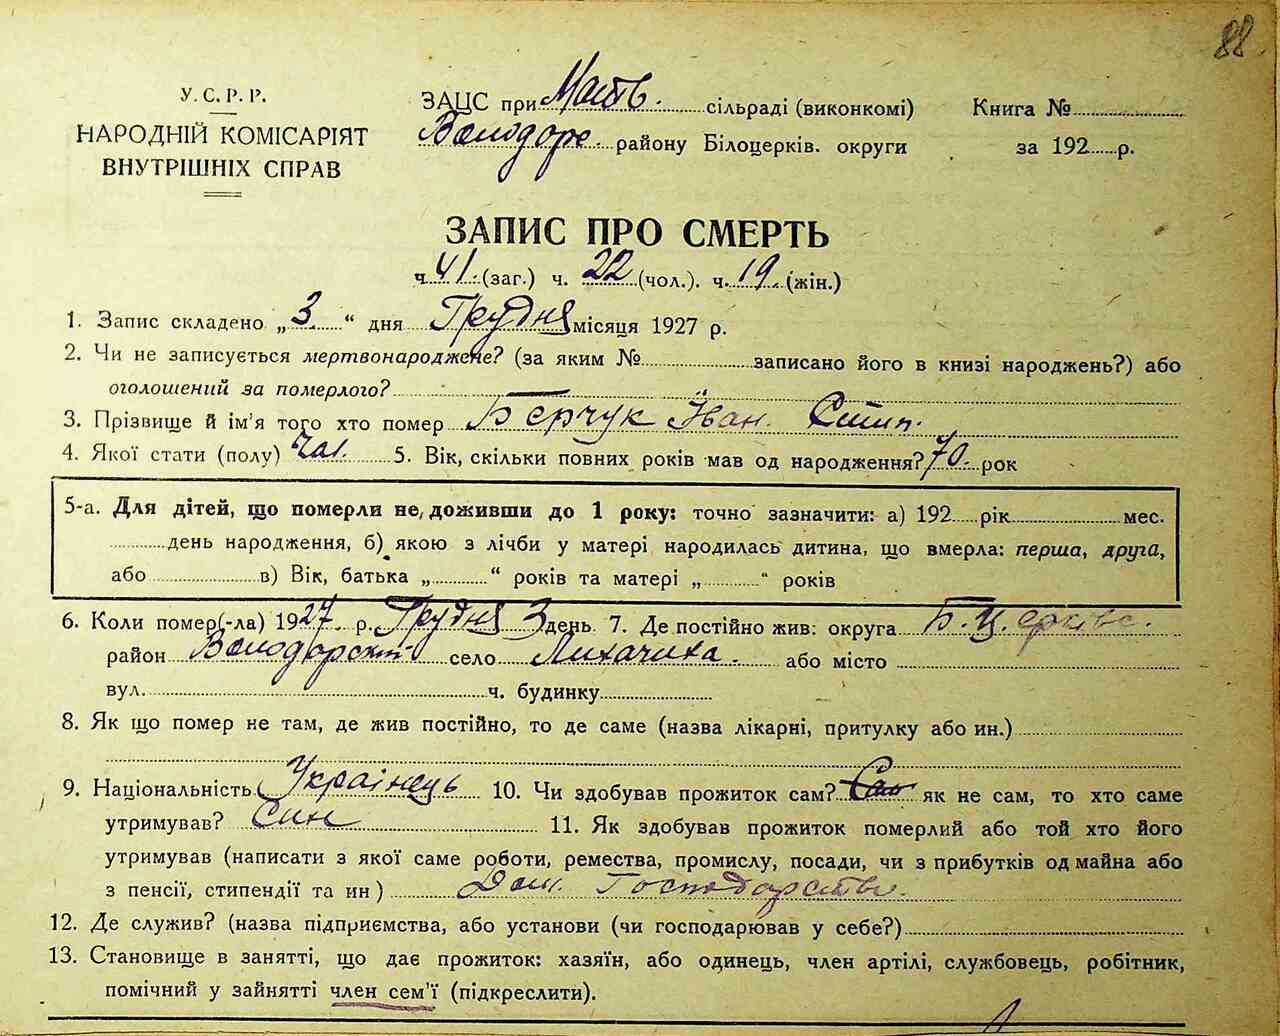 88
У.С.Р.Р.
НАРОДНІЙ КОМІСАРІЯТ
ВНУТРІШНІХ СПРАВ
ЗАЦС при Матв. сільраді (виконкомі)
Володорс. району Білоцерків. округи
Книга №
за 192 р.
ЗАПИС ПРО СМЕРТЬ
ч. 41. (заг.) ч. 22 (чол.). ч. 19. (жін.)
1. Запис складено „3“ дня Грудня місяця 1927 р.
2. Чи не записується мертвонароджене? (за яким № записано його в книзі народжень?) або
оголошений за померлого?
3. Прізвище й ім'я того хто помер Берчук Іван. Стип.
4. Якої стати (полу) Чол. 5. Вік, скільки повних років мав од народження? 70. рок
5-а. Для дітей, що померли не доживши до 1 року: точно зазначити: а) 192 рік мес.
день народження, б) якою з лічби у матері народилась дитина, що вмерла: перша, друга,
або в) Вік, батька „ “ років та матері „ “ років
6. Коли помер(-ла) 1927 р. Грудня 3 день 7. Де постійно жив: округа Б.Церківс.
район Володарськ. село Лихачиха. або місто
вул. ч. будинку
8. Як що помер не там, де жив постійно, то де саме (назва лікарні, притулку або ин.)
9. Національність Українець 10. Чи здобував прожиток сам? Сам як не сам, то хто саме
утримував? Син 11. Як здобував прожиток померлий або той хто його
утримував (написати з якої саме роботи, ремества, промислу, посади, чи з прибутків од майна або
з пенсії, стипендії та ин) Дом. Господарство.
12. Де служив? (назва підприємства, або установи (чи господарював у себе?)
13. Становище в занятті, що дає прожиток: хазяїн, або одинець, член артілі, службовець, робітник,
помічний у зайнятті член сем'ї (підкреслити).